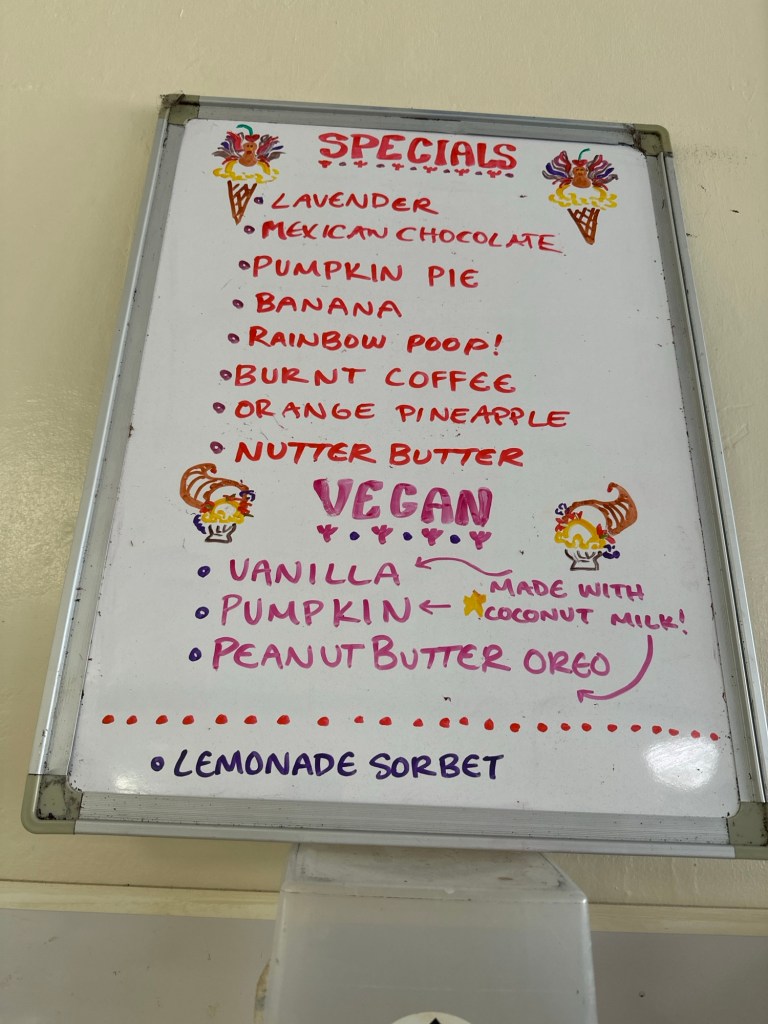 SPECIALS
• LAVENDER
• MEXICAN CHOCOLATE
• PUMPKIN PIE
• BANANA
• RAINBOW POOP!
• BURNT COFFEE
• ORANGE PINEAPPLE
• NUTTER BUTTER
VEGAN
• VANILLA
• PUMPKIN
MADE WITH
COCONUT MILK!
• PEANUT BUTTER OREO
• LEMONADE SORBET